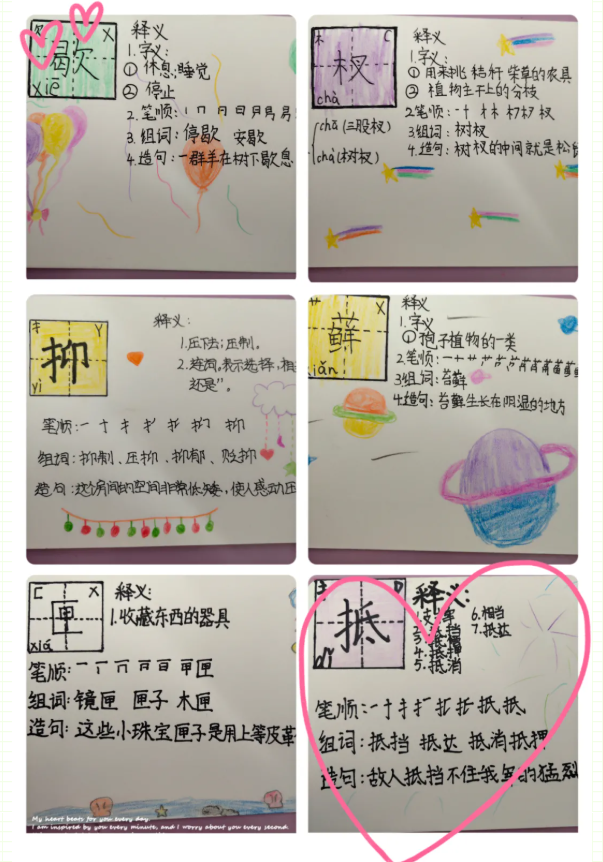 欠 X
歇
xiē
释义
1.字义:
① 休息;睡觉
② 停止
2.笔顺:
3.组词:停歇 安歇
4.造句:一群羊在树下歇息
木 C
杈
chā
释义
1.字义:
① 用来挑秸秆柴草的农具
② 植物主干上的分枝
2.笔顺:一十才木朳杈杈
3.组词:树杈
4.造句:树杈的中间就是松
chā(三股杈)
chà(树杈)
扌 Y
抑
yì
释义:
1.压下去;压制。
2.连词。表示选择,相
还是”。
笔顺:一 十 扌 扌 扣 抑
组词:抑制、压抑、抑郁、贬抑
造句:这个房间的空间非常低矮,使人感动压
艹 X
藓
xiǎn
释义
1.字义
① 孢子植物的一类
2.笔顺:
3.组词:苔藓
4.造句:苔藓生长在阴湿的地方
匚 X
匣
xiá
释义:
1.收藏东西的器具
笔顺:
组词:镜匣 匣子 木匣
造句:这些小珠宝匣子是用上等皮革
My heart beats for you every day.
I am inspired by you every minute, and I worry about you every second.
扌 D
抵
dǐ
释义:
5.抵消
6.相当
7.抵达
笔顺:
组词:抵挡 抵达 抵消抵押
造句:敌人抵挡不住我军的猛烈